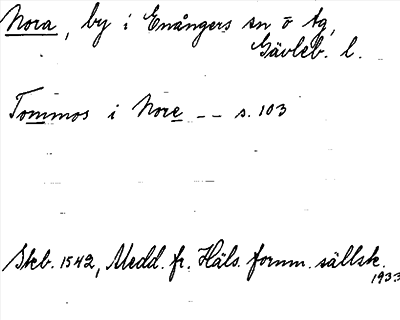 Nora, by i Enångers sn o tg,
Gävleb. l.
Tommos i Nore -- s. 103
Skb. 1542, Medd. fr. Häls. fornm. sällsk.
1933